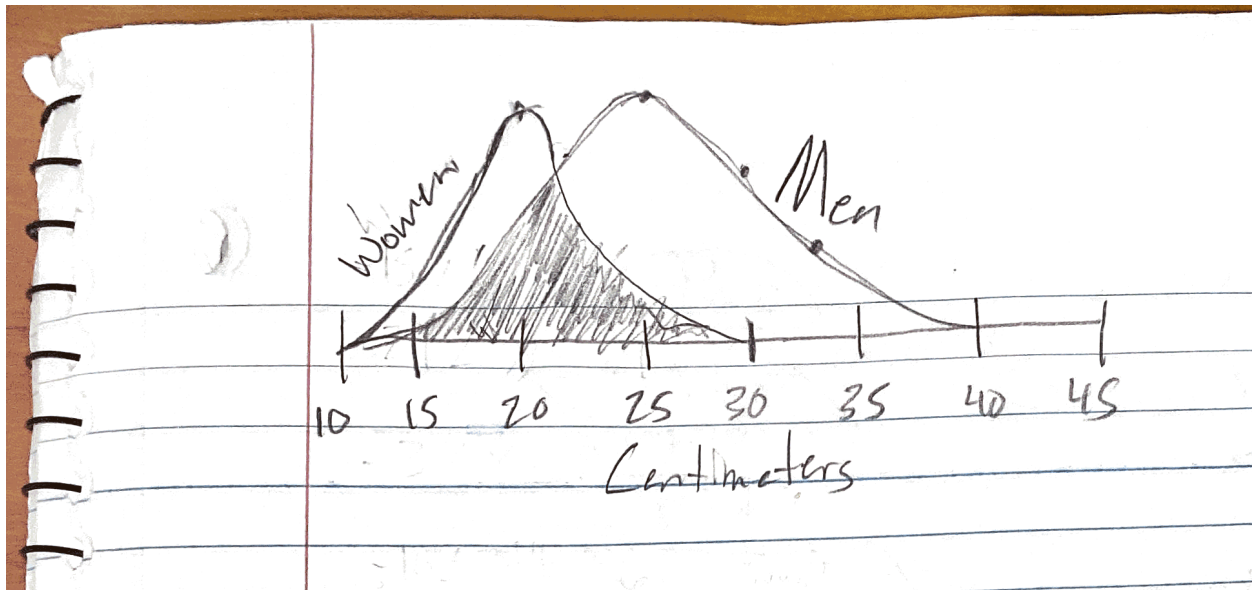 Women
Men
10 15 20 25 30 35 40 45
Centimeters